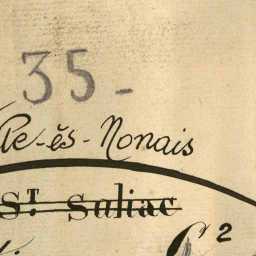 35-
Ple-ès-Nonais
St. Suliac
C²